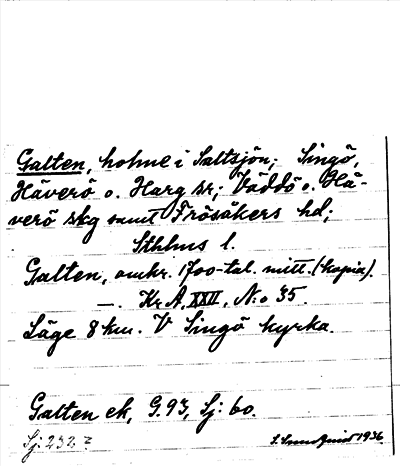 Galten, holme i Saltsjön; Singö,
Häverö o. Harg sr; Väddö o. Hä-
verö skg samt Frösåkers hd;
Sthlms l.
Galten, omkr. 1700-tal. mitt. (kopia).
—. Kr A, XXII, N:o 35.
Läge 8 km. V Singö kyrka.
Galten ek, G.93, Sj: 60.
Sj: 232. ?
1936